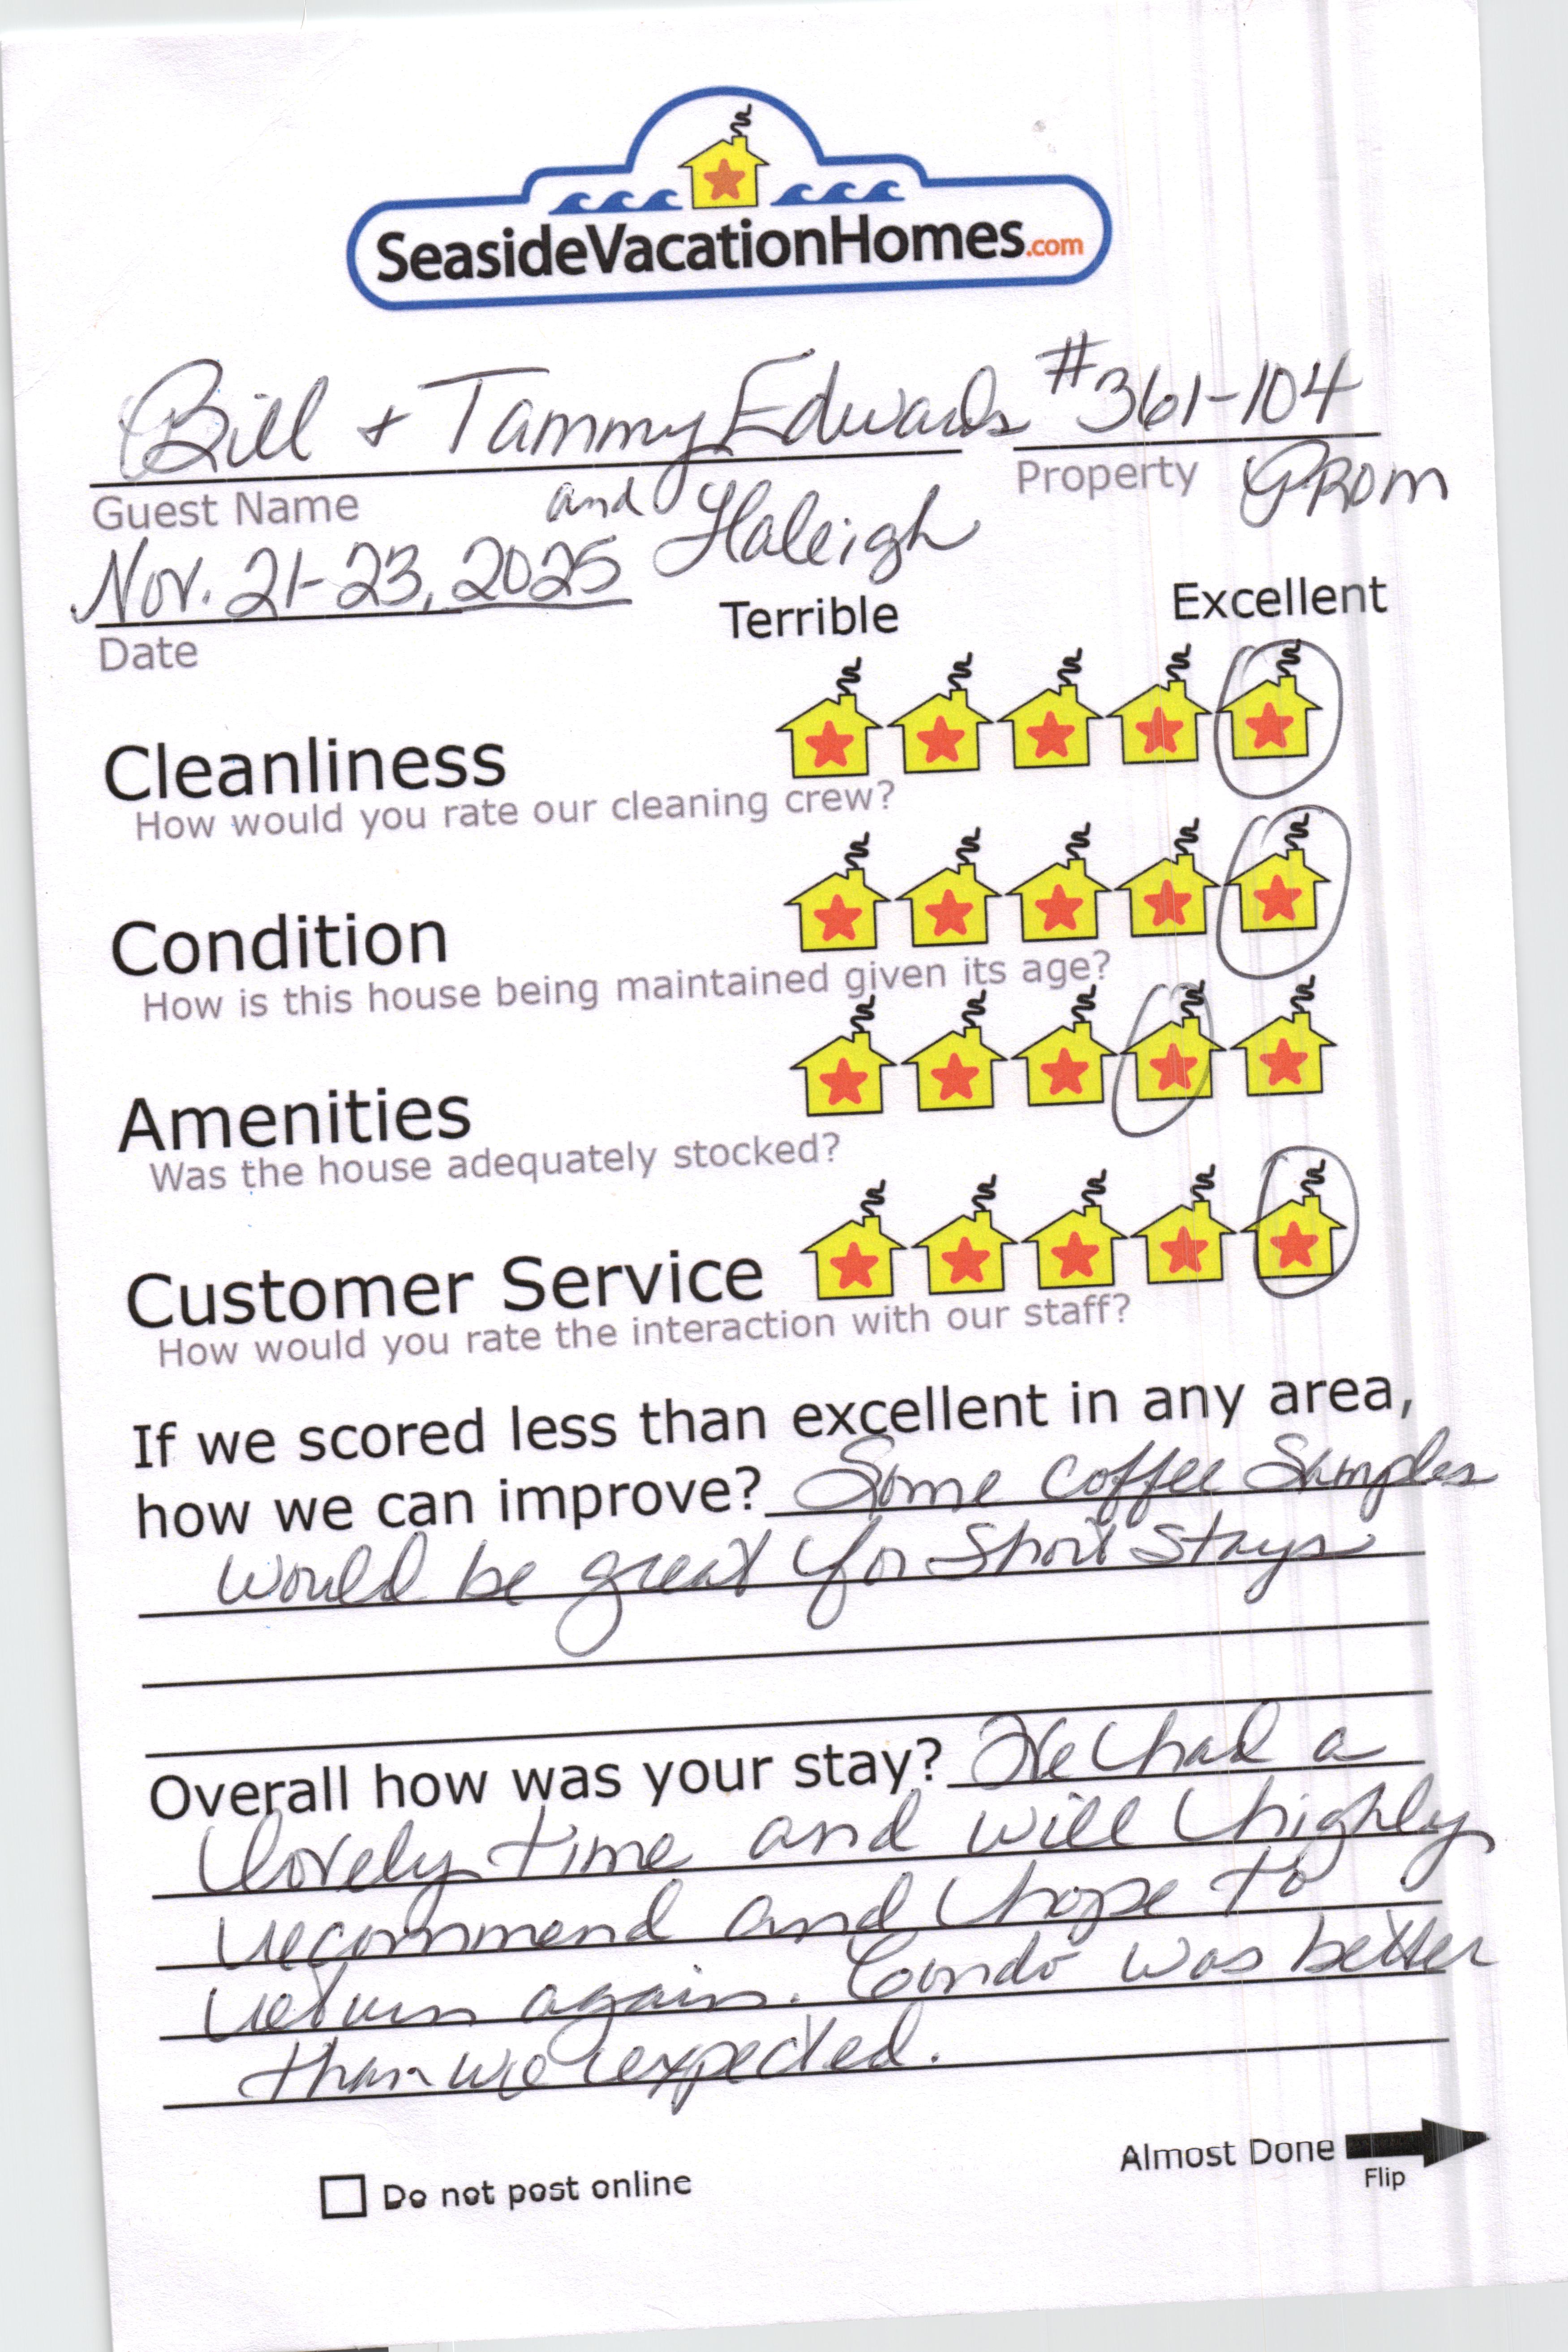 SeasideVacationHomes.com
Bill + Tammy Edwards #361-104
Guest Name and Haleigh Property Prom
Nov. 21-23, 2025
Date
Terrible Excellent
Cleanliness
How would you rate our cleaning crew?
Condition
How is this house being maintained given its age?
Amenities
Was the house adequately stocked?
Customer Service
How would you rate the interaction with our staff?
If we scored less than excellent in any area,
how we can improve? Some coffee Samples
would be great for Short Stays
Overall how was your stay? We had a
lovely time and will highly
recommend and hope to
return again. Condo was better
than we expected.
Almost Done
Flip
Do not post online